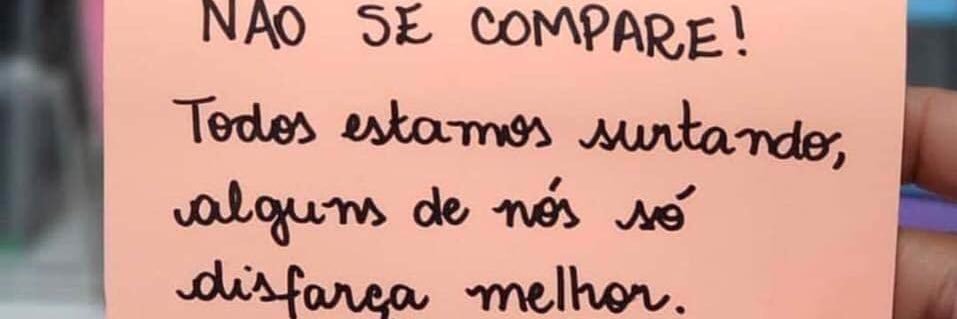 NÃO SE COMPARE!
Todos estamos surtando,
alguns de nós só
disfarça melhor.